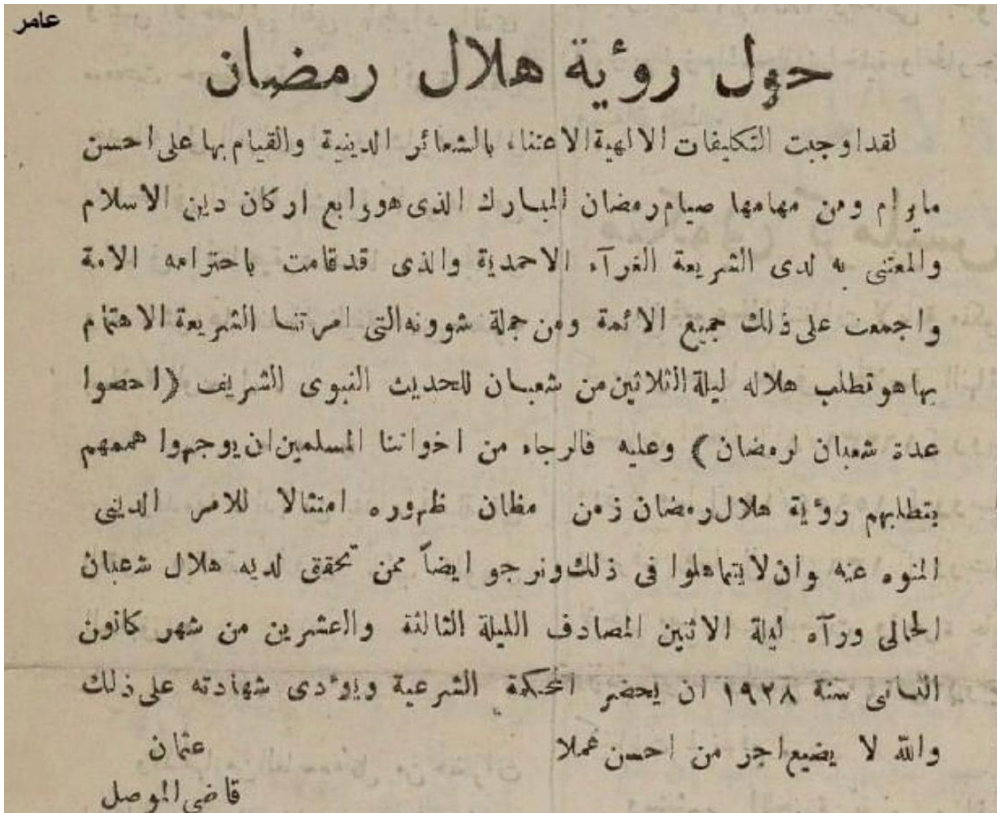 عامر
حول رؤية هلال رمضان
لقد اوجبت التكليفات الالهية الاعتناء بالشعائر الدينية والقيام بها على احسن
مايرام ومن مهامها صيام رمضان المبارك الذى هو رابع اركان دين الاسلام
والمعتنى به لدى الشريعة الغرآء الاحمدية والذى قد قامت باحترامه الامة
واجمعت على ذلك جميع الائمة ومن جملة شوونه التى امرتنا الشريعة الاهتمام
بها هو تطلب هلاله ليلة الثلاثين من شعبان للحديث النبوى الشريف (احصوا
عدة شعبان لرمضان) وعليه فالرجاء من اخواننا المسلمين ان يوجهوا هممهم
بتطلبهم رؤية هلال رمضان زمن مظان ظهوره امتثالا للامر الدينى
المنوه عنه وان لا يتماهلوا فى ذلك ونرجو ايضاً ممن تحقق لديه هلال شعبان
الحالى ورآه ليلة الاثنين المصادف الليلة الثالثة والعشرين من شهر كانون
الثانى سنة ١٩٢٨ ان يحضر المحكمة الشرعية ويؤدى شهادته على ذلك
والله لا يضيع اجر من احسن عملا
عثمان
قاضى الموصل